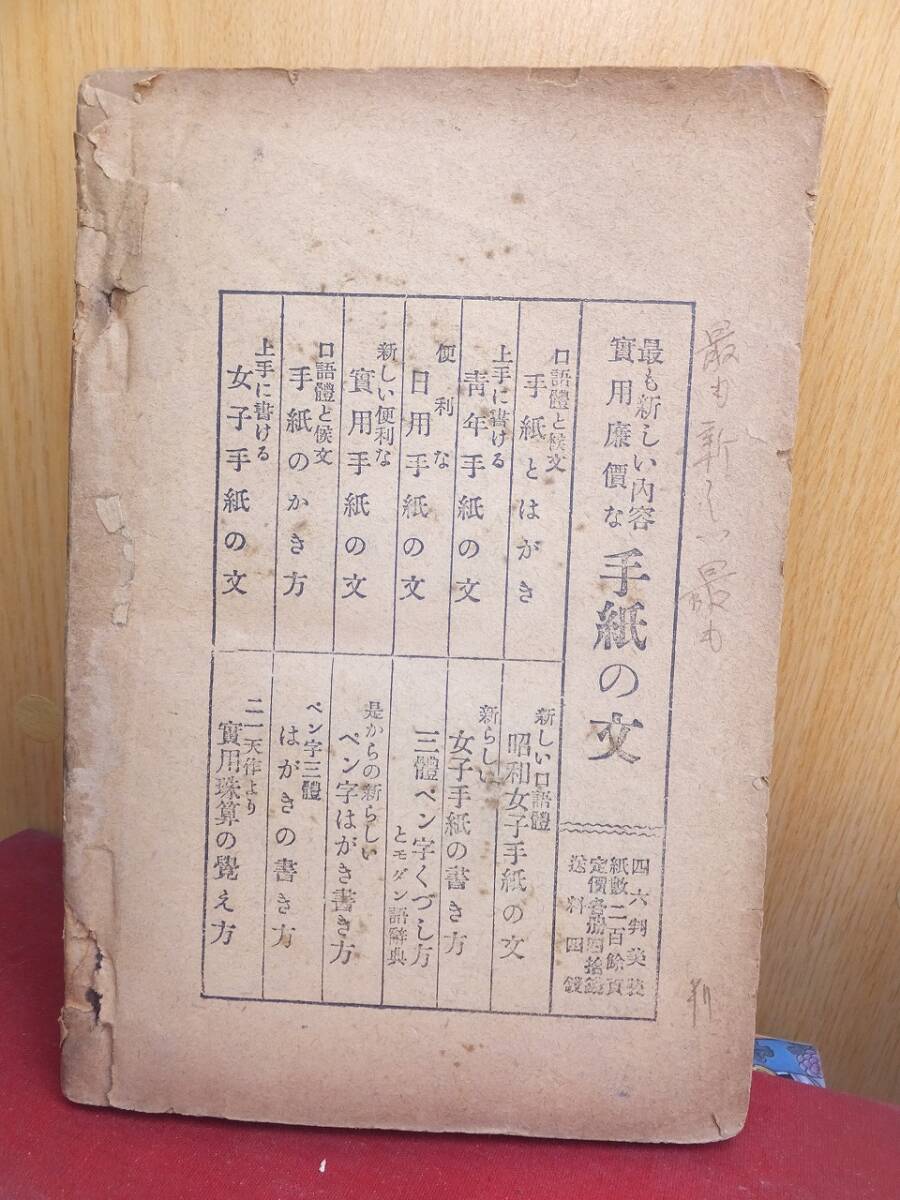 最も新しい最も
判
最も新しい內容
實用廉價な
手紙の文
四六判美裝
紙數二百餘頁
定價各册四拾錢
送料四錢
口語體と候文
手紙とはがき
上手に書ける
靑年手紙の文
便利な
日用手紙の文
新しい便利な
實用手紙の文
口語體と候文
手紙のかき方
上手に書ける
女子手紙の文
新しい口語體
昭和女子手紙の文
新らしい
女子手紙の書き方
三體ペン字くづし方
とモダン語辭典
是からの新らしい
ペン字はがき書き方
ペン字三體
はがきの書き方
二一天作より
實用珠算の覺え方